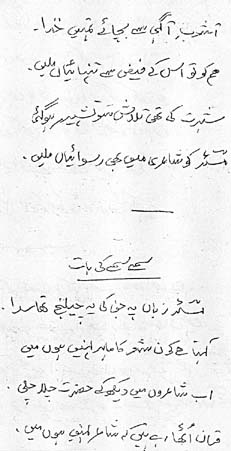 آشوبِ آگہی سے بچائے تمہیں خدا۔
ہم کو تو اس کے فیض سے تنہائیاں ملیں۔
شہرت کی تھی تلاش سو تشہیر ہوگئی
کو شاعری میں بھی رسوائیاں ملیں۔
سمے سمے کی بات
زباں پہ جن کی یہ چیلنج تھا سدا۔
کہتا ہے کون شعر کا ماہر نہیں ہوں میں
اب شاعروں میں دیکھ کے حضرت
قرآن اُٹھا رہے ہیں کہ شاعر نہیں ہوں میں۔